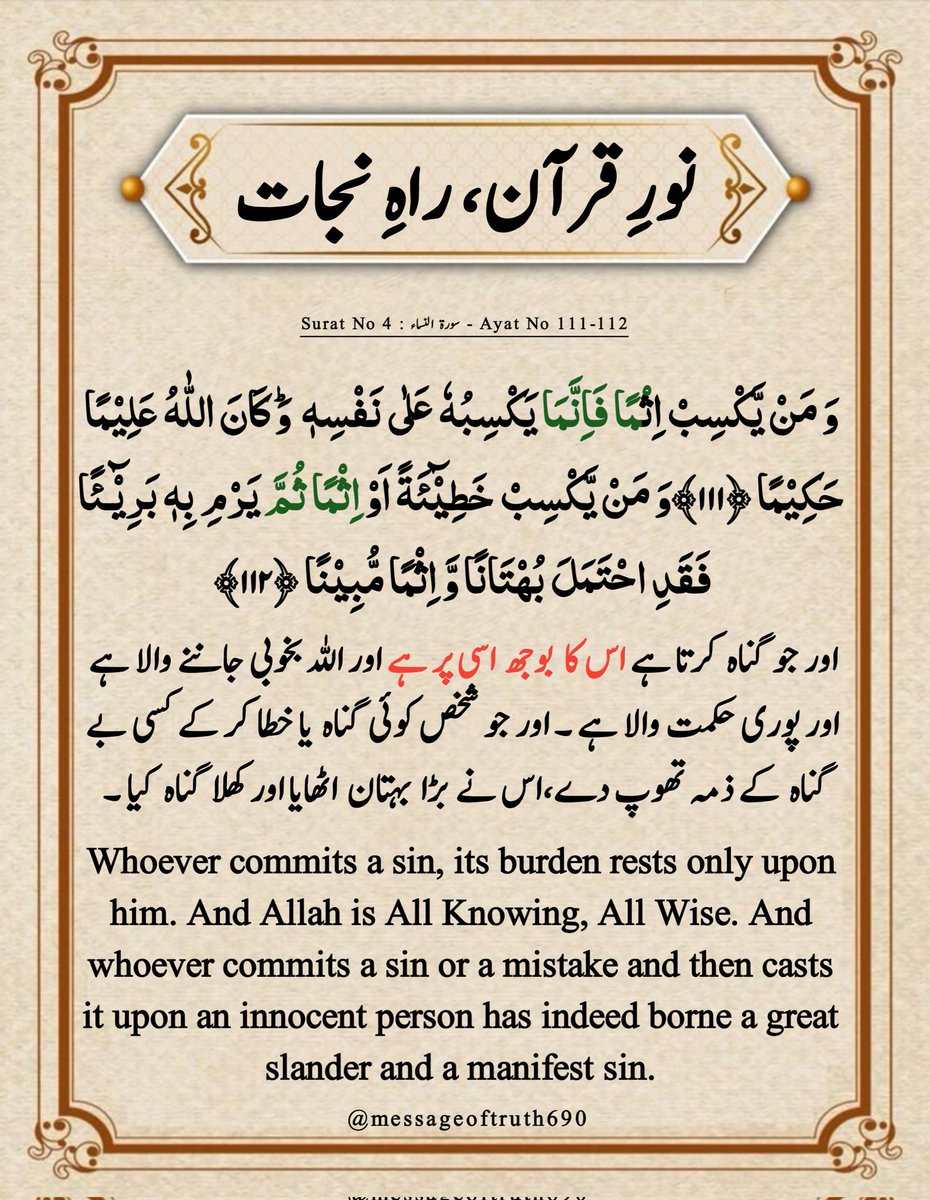 نورِ قرآن، راہِ نجات
Surat No 4 : سورة النساء - Ayat No 111-112
وَ مَنْ یَّكْسِبْ اِثْمًا فَاِنَّمَا یَكْسِبُهٗ عَلٰى نَفْسِهٖؕ وَ كَانَ اللّٰهُ عَلِیْمًا
حَكِیْمًا ﴿۱۱۱﴾ وَ مَنْ یَّكْسِبْ خَطِیْٓئَةً اَوْ اِثْمًا ثُمَّ یَرْمِ بِهٖ بَرِیْٓــٴًـا
فَقَدِ احْتَمَلَ بُهْتَانًا وَّ اِثْمًا مُّبِیْنًا ﴿۱۱۲﴾
اور جو گناہ کرتا ہے اس کا بوجھ اسی پر ہے اور اللہ بخوبی جاننے والا ہے
اور پوری حکمت والا ہے۔ اور جو شخص کوئی گناہ یا خطا کر کے کسی بے
گناہ کے ذمہ تھوپ دے، اس نے بڑا بہتان اٹھایا اور کھلا گناہ کیا۔
Whoever commits a sin, its burden rests only upon
him. And Allah is All Knowing, All Wise. And
whoever commits a sin or a mistake and then casts
it upon an innocent person has indeed borne a great
slander and a manifest sin.
@messageoftruth690
@messageoftruth690